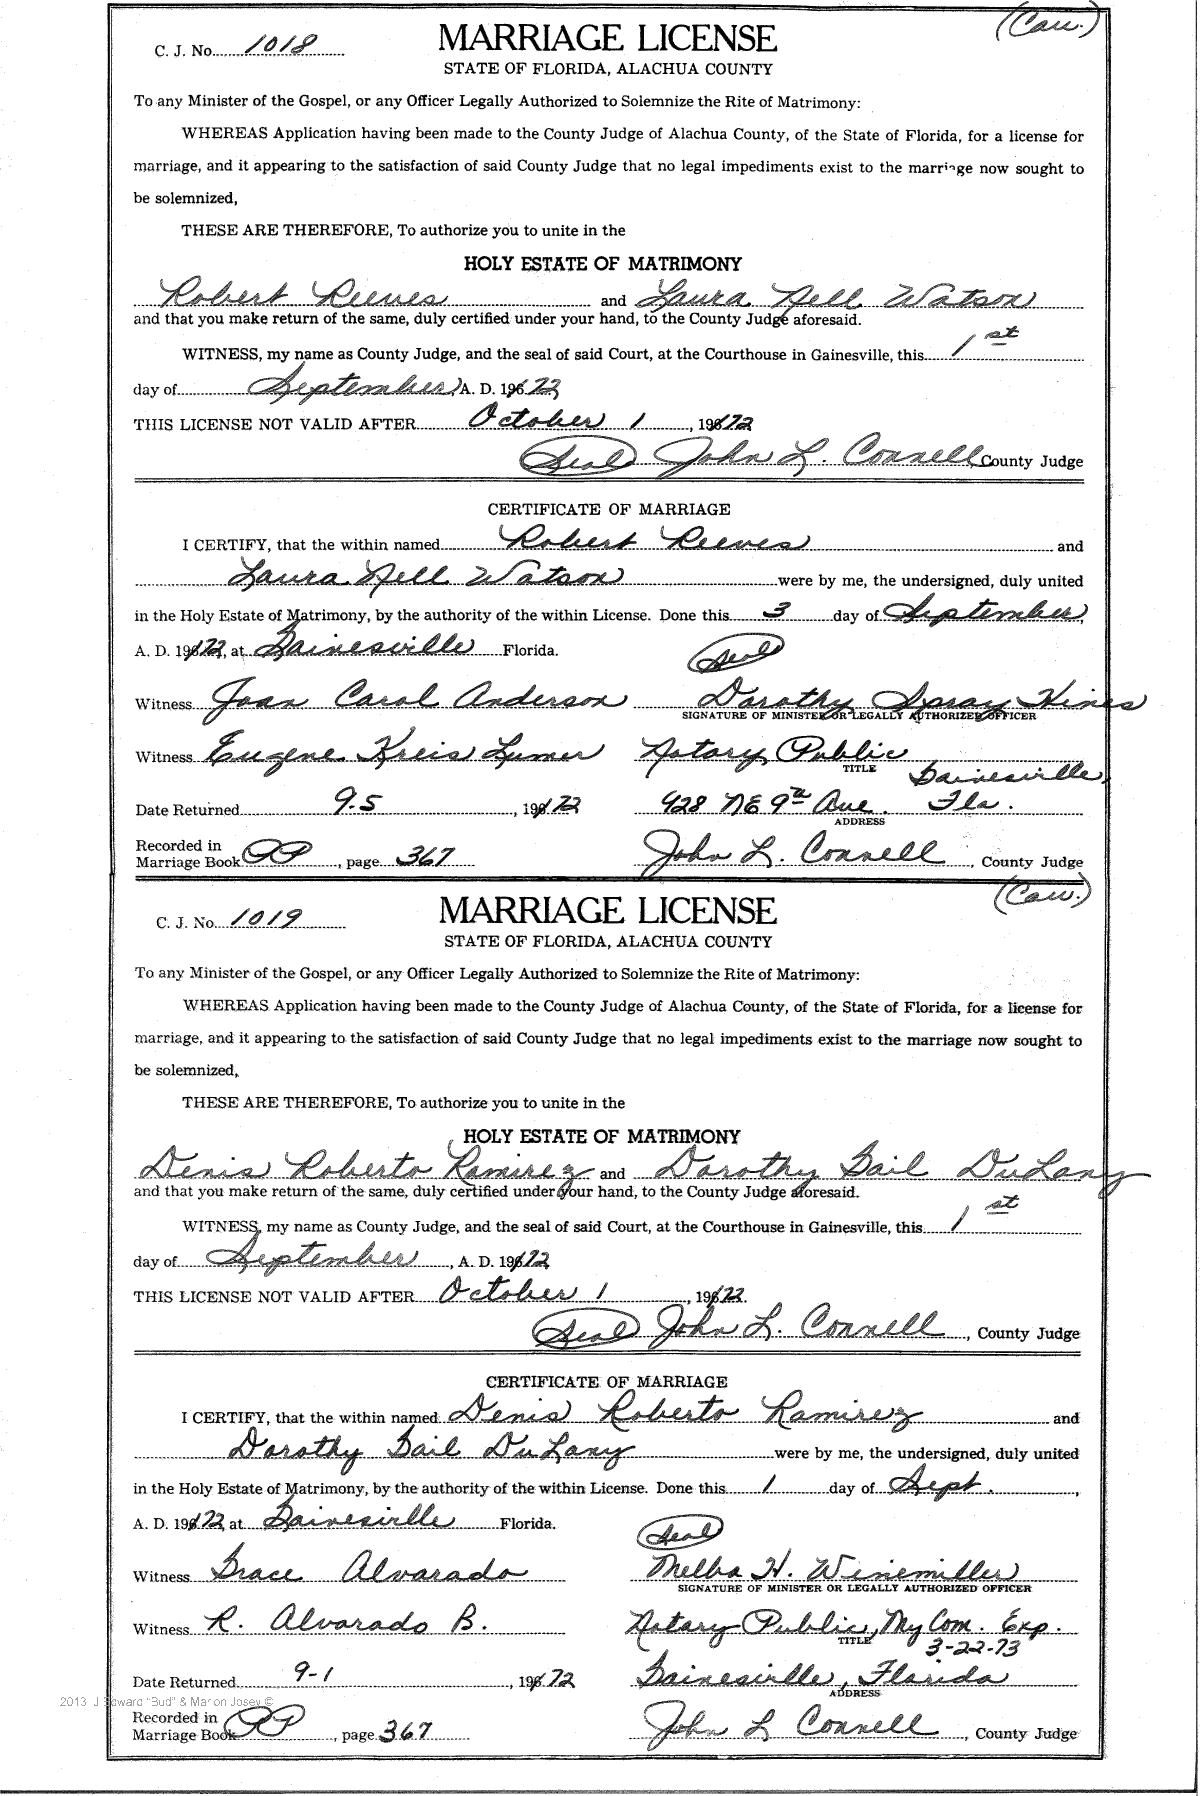 (Cau.)
C. J. No. 1018 MARRIAGE LICENSE
STATE OF FLORIDA, ALACHUA COUNTY
To any Minister of the Gospel, or any Officer Legally Authorized to Solemnize the Rite of Matrimony:
WHEREAS Application having been made to the County Judge of Alachua County, of the State of Florida, for a license for
marriage, and it appearing to the satisfaction of said County Judge that no legal impediments exist to the marriage now sought to
be solemnized,
THESE ARE THEREFORE, To authorize you to unite in the
HOLY ESTATE OF MATRIMONY
Robert Reeves and Laura Nell Watson
and that you make return of the same, duly certified under your hand, to the County Judge aforesaid.
WITNESS, my name as County Judge, and the seal of said Court, at the Courthouse in Gainesville, this 1st
day of September, A. D. 1972
THIS LICENSE NOT VALID AFTER October 1, 1972
(Seal) John L. Connell County Judge
CERTIFICATE OF MARRIAGE
I CERTIFY, that the within named Robert Reeves and
Laura Nell Watson were by me, the undersigned, duly united
in the Holy Estate of Matrimony, by the authority of the within License. Done this 3 day of September,
A. D. 1972, at Gainesville Florida. (Seal)
Witness Joan Carol Anderson Dorothy Spray Hines
SIGNATURE OF MINISTER OR LEGALLY AUTHORIZED OFFICER
Witness Eugene Kreis Lumer Notary Public
TITLE Gainesville,
Date Returned 9-5, 1972 428 NE 9th Ave. Fla.
ADDRESS
Recorded in
Marriage Book PP, page 367 John L. Connell, County Judge
(Cau.)
C. J. No. 1019 MARRIAGE LICENSE
STATE OF FLORIDA, ALACHUA COUNTY
To any Minister of the Gospel, or any Officer Legally Authorized to Solemnize the Rite of Matrimony:
WHEREAS Application having been made to the County Judge of Alachua County, of the State of Florida, for a license for
marriage, and it appearing to the satisfaction of said County Judge that no legal impediments exist to the marriage now sought to
be solemnized,
THESE ARE THEREFORE, To authorize you to unite in the
HOLY ESTATE OF MATRIMONY
Denis Roberto Ramirez and Dorothy Gail DuLany
and that you make return of the same, duly certified under your hand, to the County Judge aforesaid.
WITNESS, my name as County Judge, and the seal of said Court, at the Courthouse in Gainesville, this 1st
day of September, A. D. 1972
THIS LICENSE NOT VALID AFTER October 1, 1972
(Seal) John L. Connell, County Judge
CERTIFICATE OF MARRIAGE
I CERTIFY, that the within named Denis Roberto Ramirez and
Dorothy Gail DuLany were by me, the undersigned, duly united
in the Holy Estate of Matrimony, by the authority of the within License. Done this 1 day of Sept.,
A. D. 1972, at Gainesville Florida. (Seal)
Witness Grace Alvarado Melba H. Winemiller
SIGNATURE OF MINISTER OR LEGALLY AUTHORIZED OFFICER
Witness R. Alvarado B. Notary Public, My Com. Exp.
TITLE 3-22-73
Date Returned 9-1, 1972 Gainesville, Florida
ADDRESS
2013 J Edward "Bud" & Marion Josey ©
Recorded in
Marriage Book PP, page 367 John L Connell, County Judge